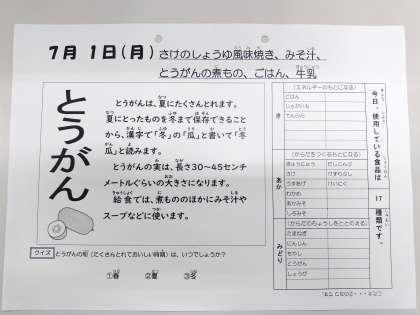 7月 1日(月) さけのしょうゆ風味焼き、みそ汁、
とうがんの煮もの、ごはん、牛乳
とうがん
とうがんは、夏にたくさんとれます。
夏にとったものを冬まで保存できること
から、漢字で「冬」の「瓜」と書いて「冬
瓜」と読みます。
とうがんの実は、長さ30~45センチ
メートルぐらいの大きさになります。
給食では、煮もののほかにみそ汁や
スープなどに使います。
クイズ とうがんの旬(たくさんとれておいしい時期)は、いつでしょうか?
①春 ②夏 ③冬
今日、使用している食品は 17 種類です。
き
(エネルギーのもとになる)
ごはん
じゃがいも
でんぷん
あか
(からだをつくるもとになる)
ぎゅうにゅう だしこんぶ
さけ けずりぶし
うすあげ けいにく
わかめ
あかみそ
しろみそ
みどり
(からだのちょうしをととのえる)
たまねぎ
にんじん
もやし
とうがん
しょうが